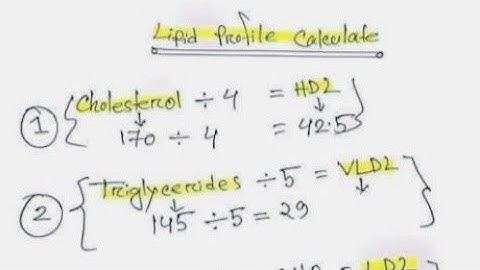 Lipid Profile Calculate
① {Cholesterol ÷ 4 = HDL}
170 ÷ 4 = 42.5
② {Triglycercides ÷ 5 = VLDL}
145 ÷ 5 = 29
= LDL}